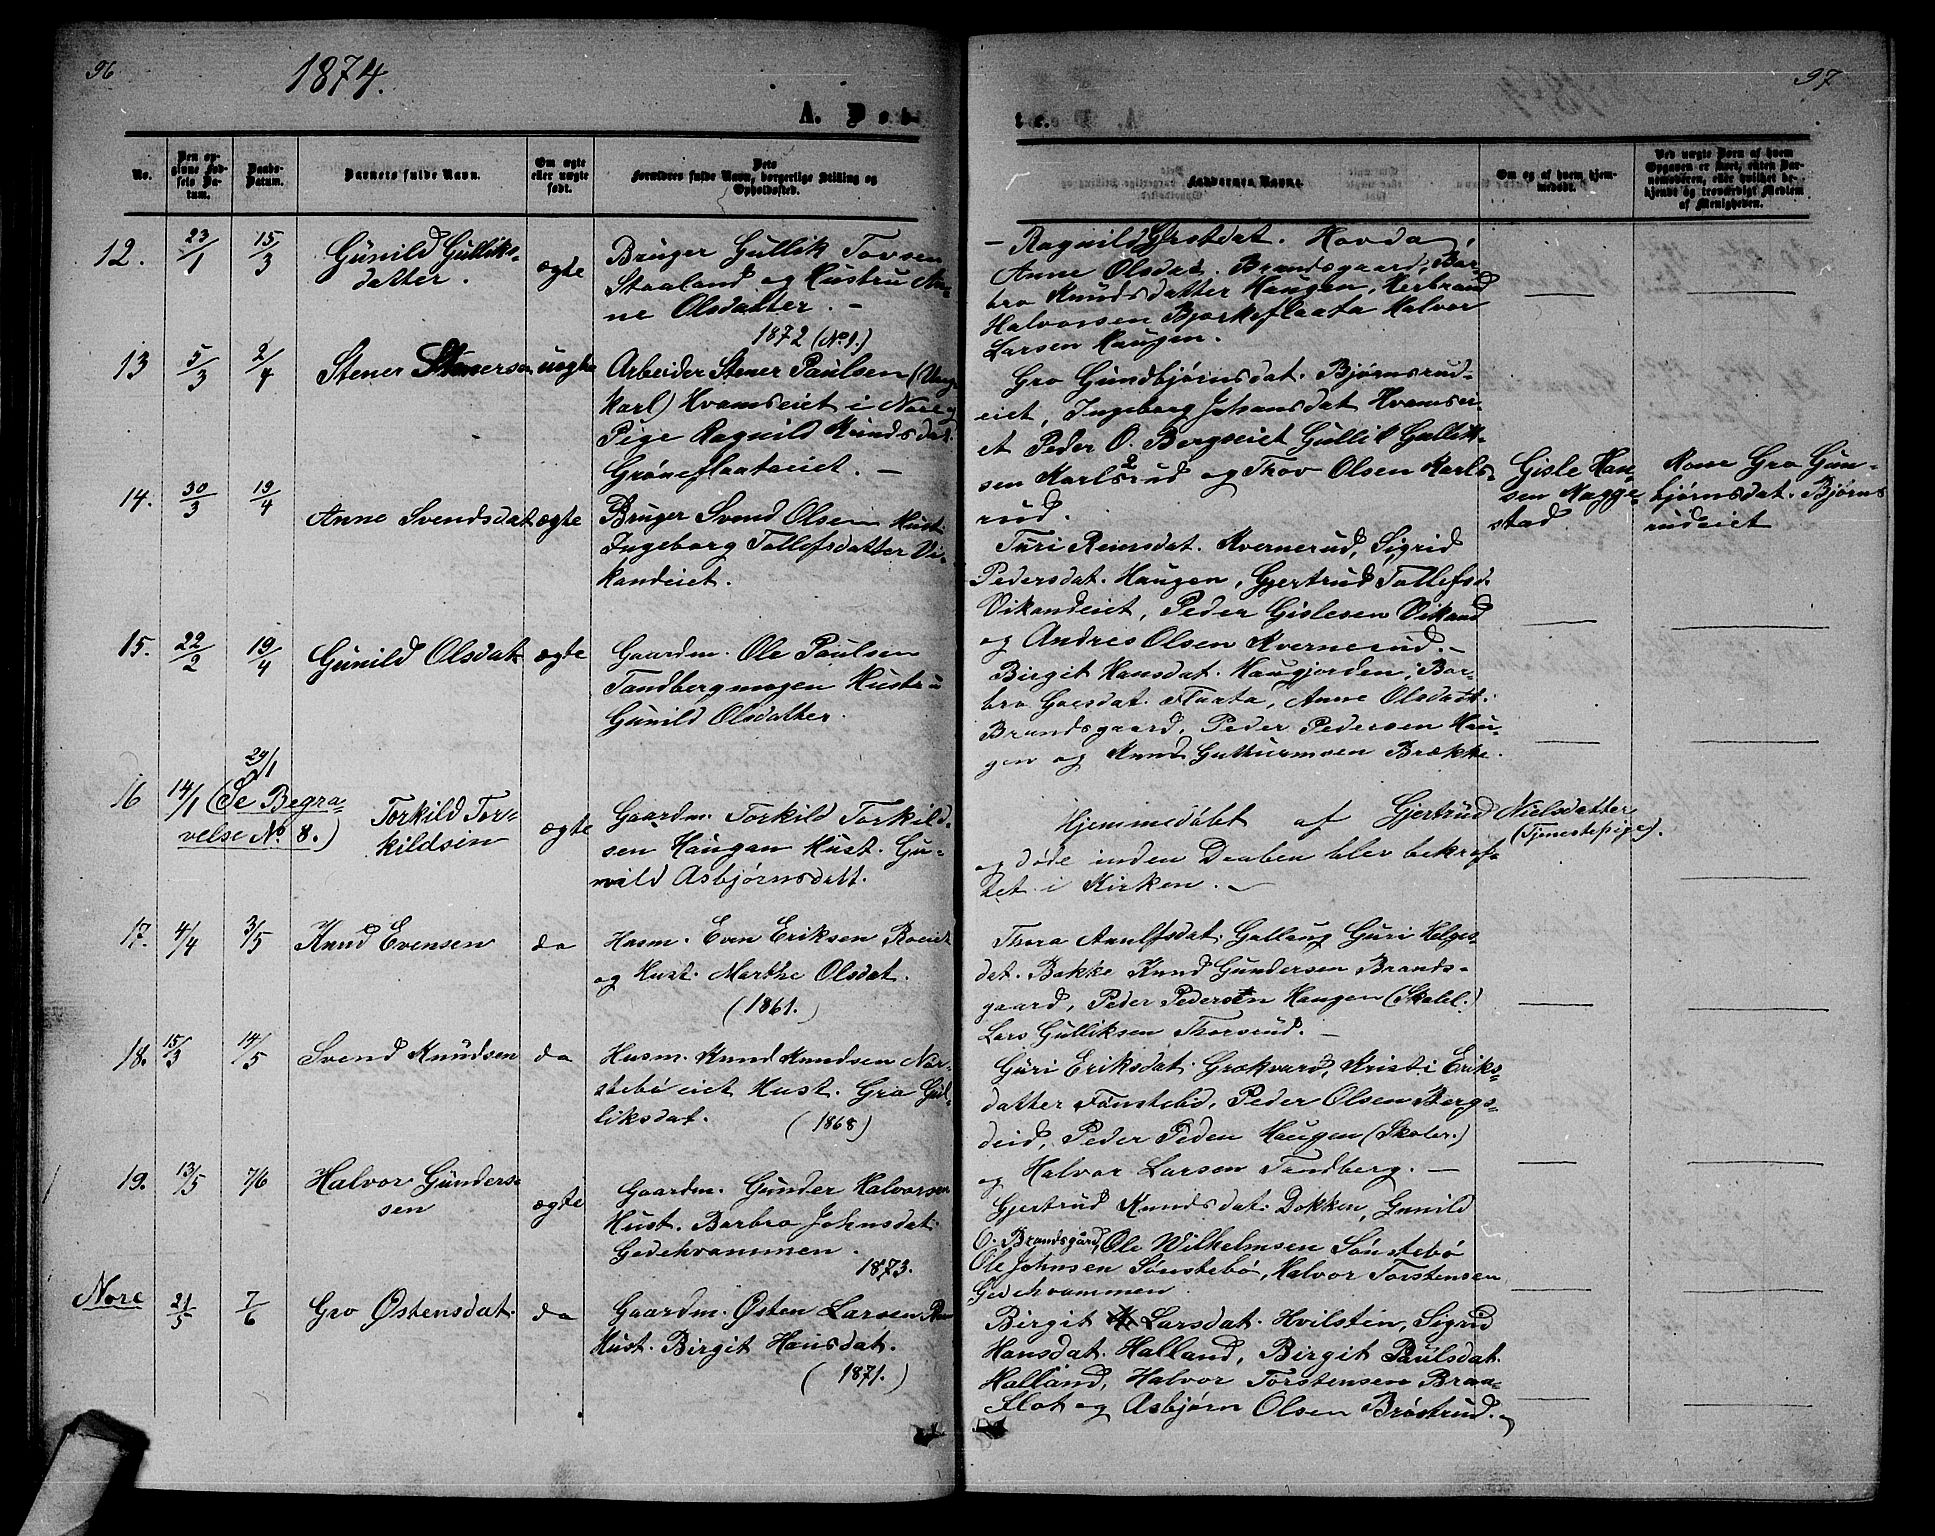 96
1874.
A. Døb-
No.
Den op-
givne Fød-
sels Da-
tum.
Daabs-
Datum.
Barnets fulde Navn.
Om ægte
eller uægte
født.
Dets
Forældres fulde Navn, borgerlige Stilling og
Opholdssted.
12.
23/1
15/3
Gunild Gulliks-
datter.
ægte
Bruger Gullik Torsen
Staaland og Hustru An-
ne Olsdatter. –
1872 (No 1.)
13
5/3
2/4
Stener Stenersen
uægte
Arbeider Stener Paulsen (Ung-
karl) Hvamseiet i Nore og
Pige Ragnild Knudsdat.
Grøneflaateiet. –
14.
30/3
19/4
Anne Svendsdat
ægte
Bruger Svend Olsen Hust.
Ingeborg Tollefsdatter Vi-
kandeiet.
15.
22/2
19/4
Gunild Olsdat
ægte
Gaardm. Ole Paulsen
Tandbergmogen Hustru
Gunild Olsdatter.
16
14/1
29/1
(Se Begra-
velse No 8.)
Torkild Tor-
kildsen
ægte
Gaardm. Torkild Torkild-
sen Haugan Hust. Gu-
nild Asbjørnsdatt.
17.
4/4
3/5
Knud Evensen
do
Husm. Even Eriksen Roeiet
og Hust. Marthe Olsdat.
(1861.)
18.
15/3
14/5
Svend Knudsen
do
Husm. Knud Knudsen Nør-
stebøeiet Hust. Gro Gul-
liksdat.
(1868)
19.
13/5
7/6
Halvor Gunders-
sen
ægte
Gaardm. Gunder Halvorsen
Hust. Barbro Johnsdat.
Gedehvammen.
1873.
Nore
21/5
7/6
Gro Østensdat.
do
Gaardm. Østen Larsen
Hust. Birgit Hansdat.
(1871.)
97
te.
Faddernes Navne.
Om og af hvem hjem-
medøbt.
Ved uægte Børn af hvem
Opgaven er skeet, enten Bar-
nemoderen, eller hvilket be-
kjendt og troværdigt Medlem
af Menigheden.
– Ragnild Gretdat. Hovda,
Anne Olsdat. Brandsgaard, Bar-
bro Knudsdatter Haugen, Herbrand
Halvorsen Bjørkeflaata Halvor
Larsen Haugen.
Gro Gundbjørnsdat. Bjørnsrud-
eiet, Ingeborg Johansdat Hvamsei-
et Peder O. Bergseiet Gullik Gullik-
sen Karlsrud og Thov Olsen Karls-
rud.
Gisle Han-
sen Nagge-
stad
Kone Gro Gun-
bjørnsdat. Bjørns-
rudeiet
Turi Reiersdat. Kvernerud, Sigrid
Pedersdat. Haugen, Gjertrud Tollefsd.
Vikandeiet, Peder Gislesen Vikand
og Andres Olsen Kvernerud. –
Birgit Hansdat. Haugjorden, Bar-
bro Goesdat. Flaata, Anne Olsdatt.
Brandsgaard, Peder Pedersen Hau-
gen og Knud Gutturmsen Brække.
Hjemmedøbt af Gjertrud Nielsdatter
(Tjenestepige).
og døde inden Daaben blev bekræf-
tet i Kirken. –
Thora Anulfsdat. Gallaug Guri Helges-
dat. Bakke Knud Gundersen Brands-
gaard, Peder Pedersen Haugen (Skolel.)
Lars Gulliksen Thorsrud. –
Guri Eriksdat. Grækvard Kristi Eriks-
datter Tønstebø, Peder Olsen Bergs-
eid, Peder Peden Haugen (Skoler.)
og Halvor Larsen Tandberg. –
Gjertrud Knudsdat. Dokken, Gunild
O. Brandsgård, Ole Wilhelmsen Sønstebø
Ole Johnsen Sønstebø, Halvor Torstensen
Gedehvammen.
Birgit Larsdat. Hvilstin, Sigrid
Hansdat. Halland, Birgit Paulsdat.
Halland, Halvor Torstensen Braa-
flot og Asbjørn Olsen Brøstrud. –